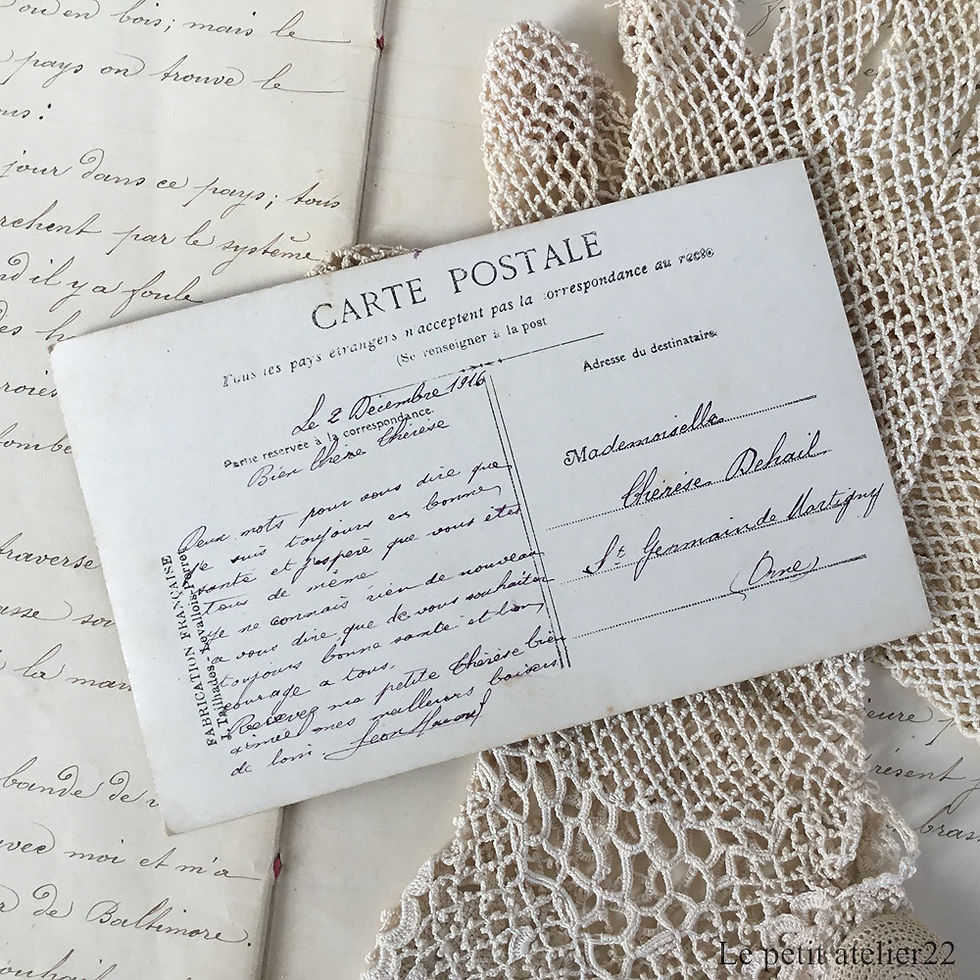 ou en bois; mais le
pays on trouve le
jour dans ce pays; tous
rchent par le système
nd il y a foule
des h
CARTE POSTALE
Tous les pays étrangers n'acceptent pas la correspondance au recto
(Se renseigner à la post
Partie reservée à la correspondance.
Adresse du destinataire
Le 2 Décembre 1916
Bien Chère Thérèse
Deux mots pour vous dire que
je suis toujours en bonne
santé et j'espère que vous êtes
Tous de même
Je ne connais rien de nouveau
a vous dire que de vous souhaiter
toujours bonne santé et bon
courage a tous.
Recevez ma petite Thérèse bien
aimée mes meilleurs baisers
de loin. Léon
Mademoiselle
Thérèse Dehail
St Germain de Martigny
(Orne)
FABRICATION FRANÇAISE
J. Tailhades - Levallois-Perret
traverse
la main
bande de
avec moi et m'a
de Baltimore.
résent
bras
Le petit atelier22